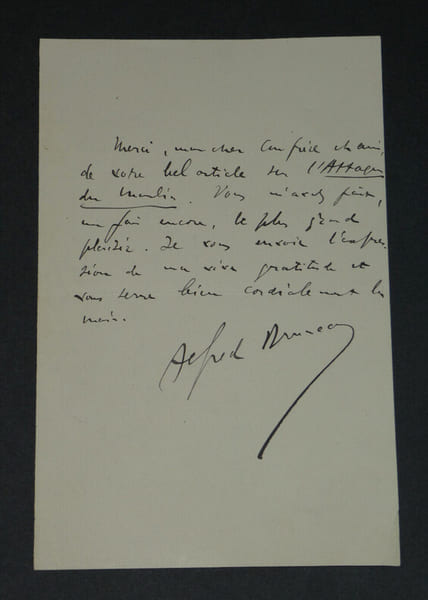 Merci, mon cher confrère et ami,
de votre bel article sur l'Attaque
du Moulin. Vous m'avez fait,
une fois encore, le plus grand
plaisir. Je vous envoie l'expres-
sion de ma vive gratitude et
vous serre bien cordialement les
mains.
Alfred Bruneau